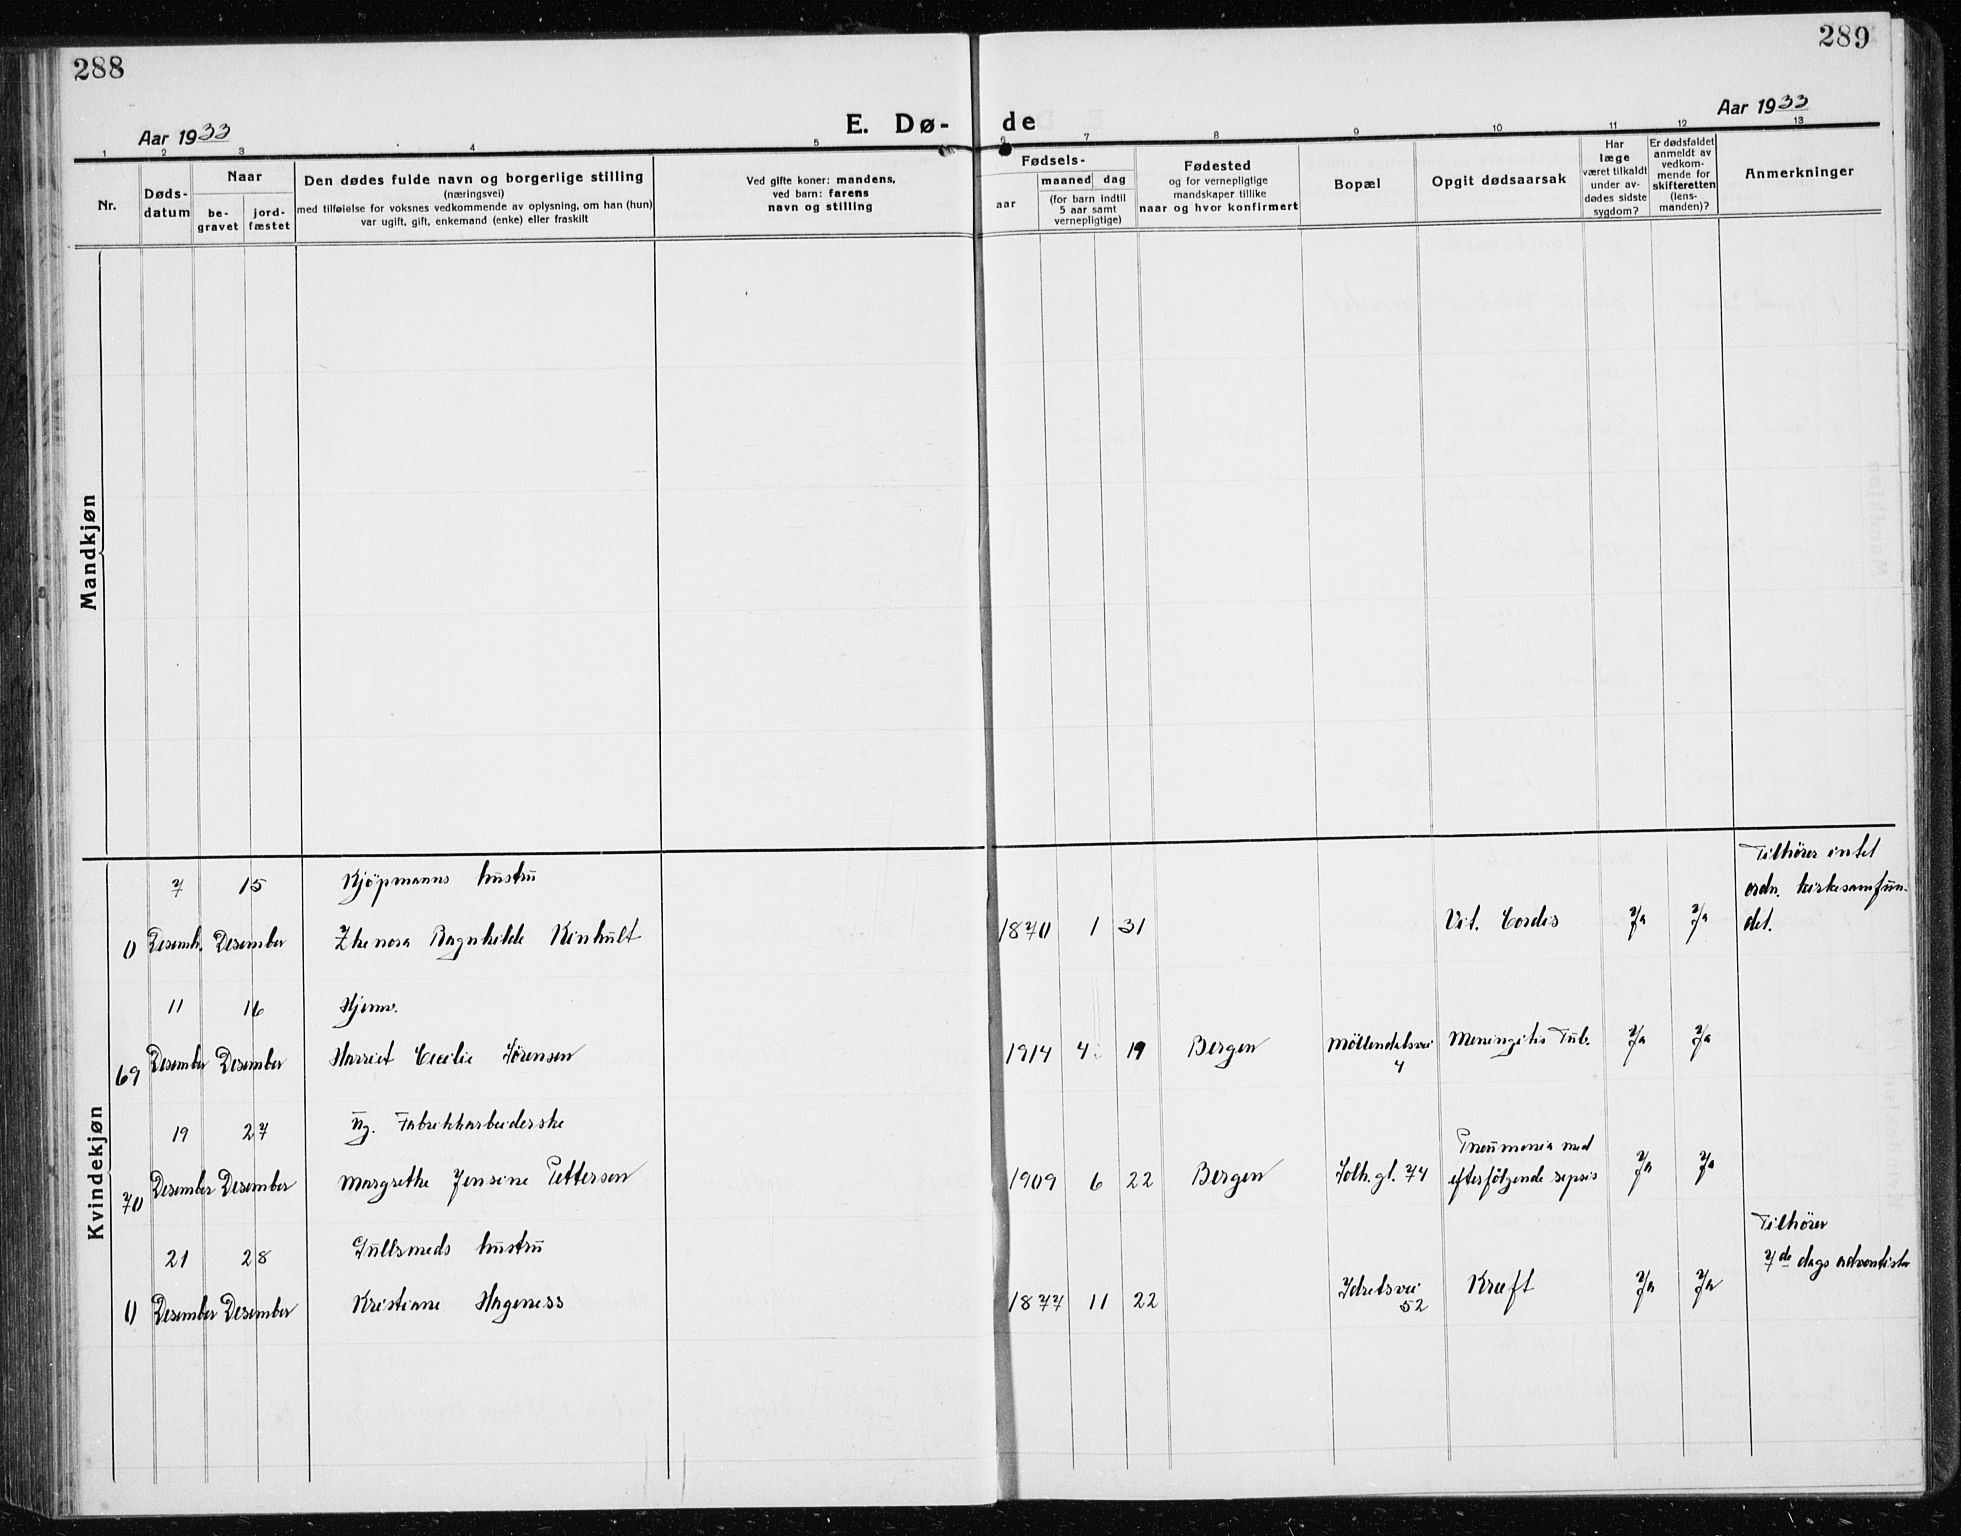 288
289
Aar 1933
E. Dø-
de
Aar 1933
1 2 3 4 5 6 7 8 9 10 11 12 13
Nr.
Døds-
datum
Naar
be-
gravet
jord-
fæstet
Den dødes fulde navn og borgerlige stilling
(næringsvei)
med tilføielse for voksnes vedkommende av oplysning, om han (hun)
var ugift, gift, enkemand (enke) eller fraskilt
Ved gifte koner: mandens,
ved barn: farens
navn og stilling
Fødsels-
aar
maaned dag
(for barn indtil
5 aar samt
vernepligtige)
Fødested
og for vernepligtige
mandskaper tillike
naar og hvor konfirmert
Bopæl
Opgit dødsaarsak
Har
læge
været tilkaldt
under av-
dødes sidste
sygdom?
Er dødsfaldet
anmeldt av
vedkom-
mende for
skifteretten
(lens-
manden)?
Anmerkninger
Mandkjøn
Kvindekjøn
7 15 Kjøpmanns hustru
0 Desemb. Desember Ragnhilde Kinhult 1870 1 31 Vit. Cordis Ja Ja
Tilhører intet
ordn. kirkesamfun-
det.
11 16 Hjemv.
69 Desember Desember Harriet Cecilie Sørensen 1914 4 19 Bergen Møllendalsvei
4
Meningitis Tub. Ja Ja
19 27 Ug. Fabrikkarbeiderske
70 Desember Desember Margrethe Jensine Pettersen 1909 6 22 Bergen Solh. gt. 74
Pneumonia med
efterfølgende sepsis Ja Ja
21 28 Gullsmeds hustru
0 Desember Desember Kristiane Hageness 1877 11 22
52
Kræft Ja Ja
Tilhører
7de dags adventister